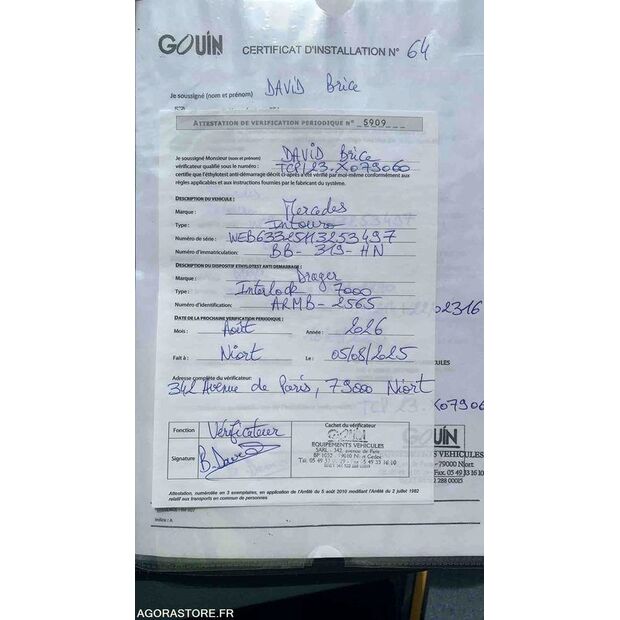 GOUIN
CERTIFICAT D'INSTALLATION N° 64
Je soussigné (nom et prénom) DAVID Brice
ATTESTATION DE VERIFICATION PERIODIQUE N° 5909
Je soussigné Monsieur (nom et prénom) DAVID Brice
vérificateur qualifié sous le numéro : TCP 23.X079060
certifie que l'éthylotest anti-démarrage décrit ci-après a été vérifié par moi-même conformément aux
règles applicables et aux instructions fournies par le fabricant du système.
DESCRIPTION DU VÉHICULE :
Marque : Mercedes
Type : Intouro
Numéro de série : WEB63325113253497
Numéro d'immatriculation: BB - 319 - HN
DESCRIPTION DU DISPOSITIF ETHYLOTEST ANTI DEMARRAGE :
Marque : Drager
Type : Interlock 7000
Numéro d'identification: ARMB - 2565
02316
DATE DE LA PROCHAINE VERIFICATION PERIODIQUE :
Mois : Août Année : 2026
Fait à : Niort Le : 05/08/2025
Adresse complète du vérificateur:
342 Avenue de Paris, 79000 Niort
TCP 23.X07906
Fonction Vérificateur
Signature B. David
Cachet du vérificateur
GOUIN
EQUIPEMENTS VEHICULES
SARL - 342, avenue de Paris
BP 1032 - 79010 Niort Cedex
UIN
S VEHICULES
- 79000 Niort
. 05 49 33 16 10
2 288 00015
Attestation, numérotée en 3 exemplaires, en application de l'Arrêté du 5 août 2010 modifiant l'Arrêté du 2 juillet 1982
relatif aux transports en commun de personnes
Indice : A
AGORASTORE.FR